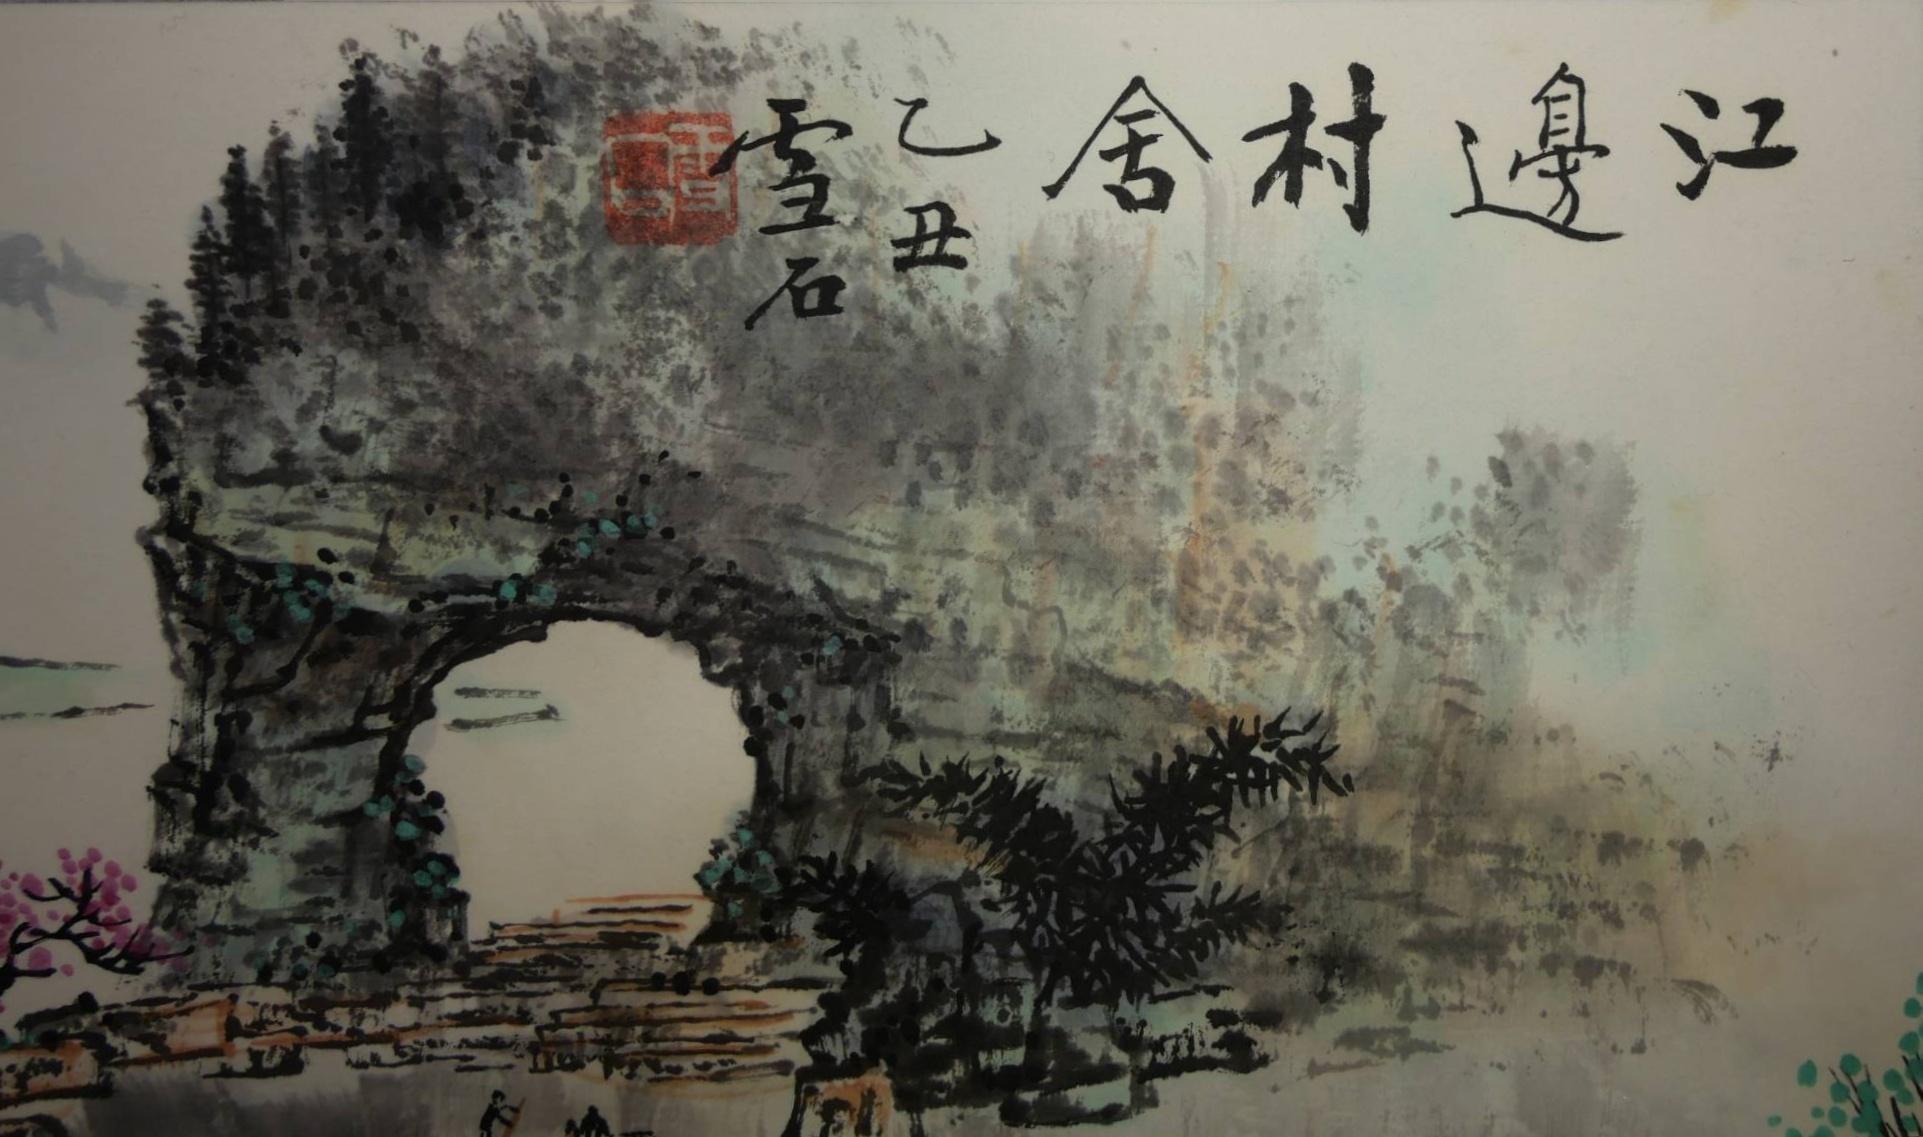 江邊村舍
乙丑
雪石